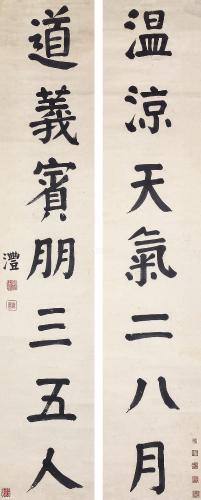 温涼天氣二八月
道義賓朋三五人
澧